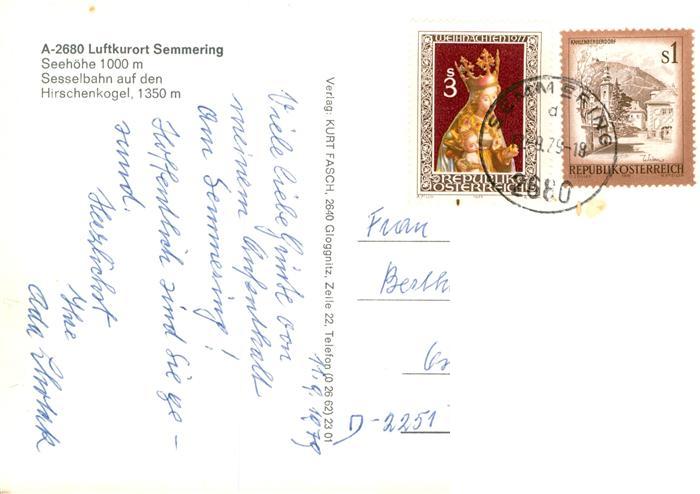 A-2680 Luftkurort Semmering
Seehöhe 1000 m
Sesselbahn auf den
Hirschenkogel, 1350 m
WEIHNACHTEN 1977
S
3
REPUBLIK
ÖSTERREICH
KAHLENBERGERDORF
s1
Wien
REPUBLIK ÖSTERREICH
SEMMERING
d
.9.79-18
2680
Verlag: KURT FASCH, 2640 Gloggnitz, Zeile 22, Telefon (0 26 62) 23 01
11.9.1979
Viele liebe Grüße von
meinem Aufenthalt
am Semmering!
Hoffentlich sind Sie ge-
sund.
Herzlichst
Ihre
Ada
Frau
Berth
D-2251